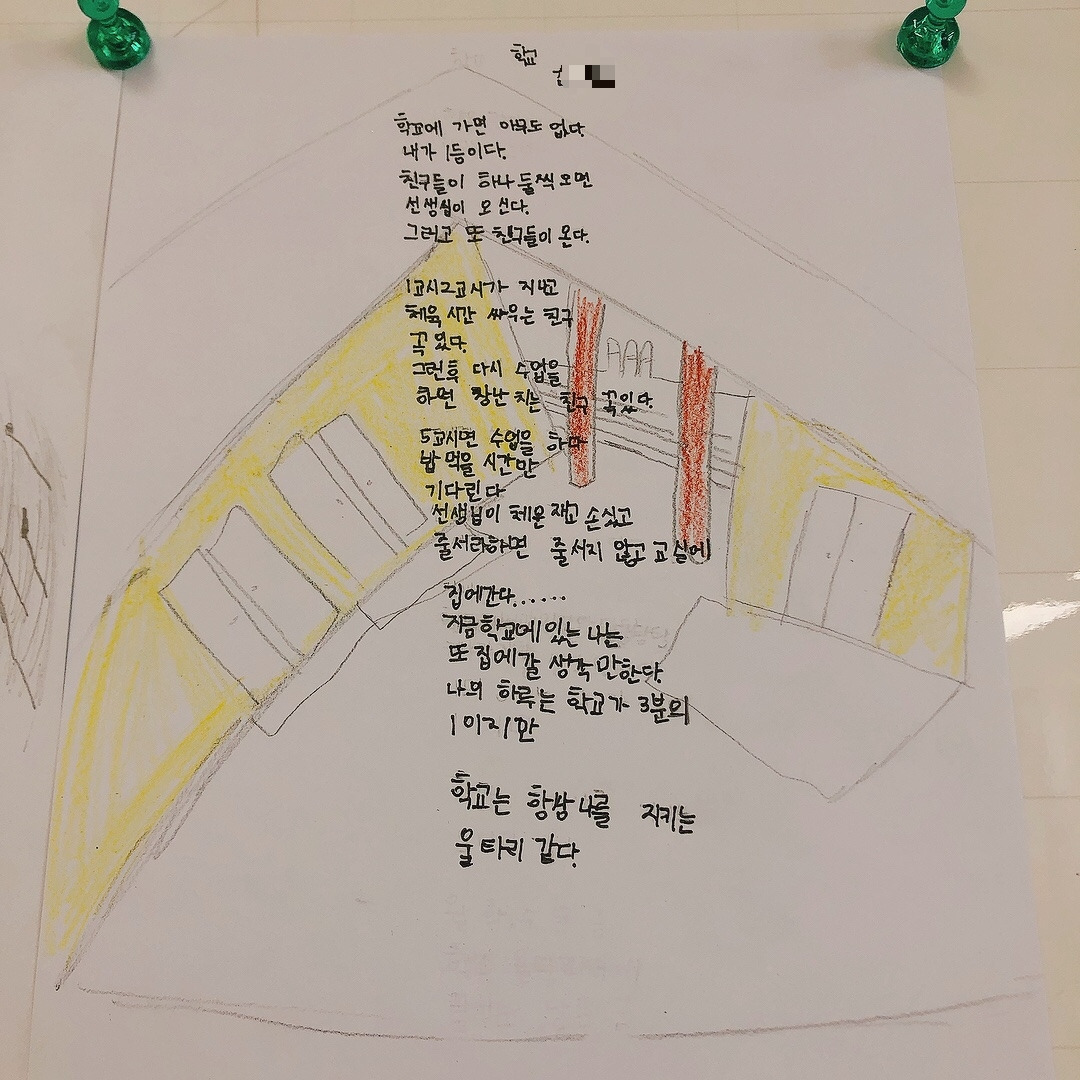 학교
학교에 가면 아무도 없다.
내가 1등이다.
친구들이 하나 둘씩 오면
선생님이 오신다.
그러고 또 친구들이 온다.
1교시2교시가 지나고
체육 시간 싸우는 친구
꼭 있다.
그런후 다시 수업을
하면 장난 치는 친구 꼭있다.
5교시면 수업을 하다
밥 먹을 시간만
기다린다
선생님이 체온 재고 손씻고
줄서라하면 줄서지 않고 교실에
집에간다......
지금학교에있는 나는
또 집에갈 생각만한다.
나의 하루는 학교가 3분의
1이지만
학교는 항상 나를 지키는
울타리 같다.
AAA